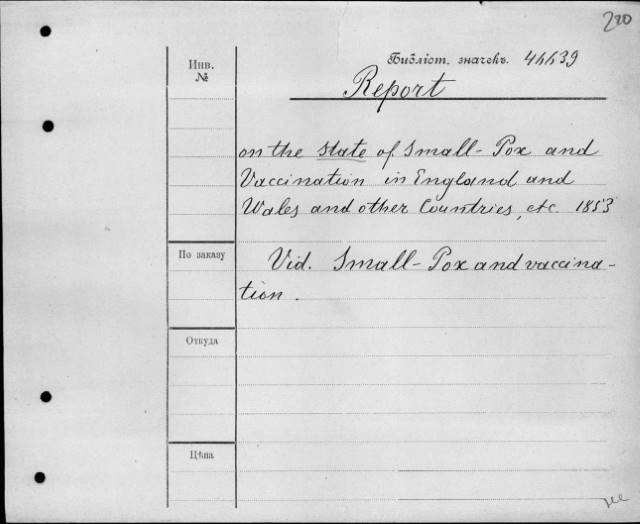 220
Инв.
№
Библіот. значекъ. 44639
Report
on the state of Small-Pox and
Vaccination in England and
Wales and other Countries, etc. 1853
По заказу
Vid. Small-Pox and vaccina-
tion.
Откуда
Цѣна